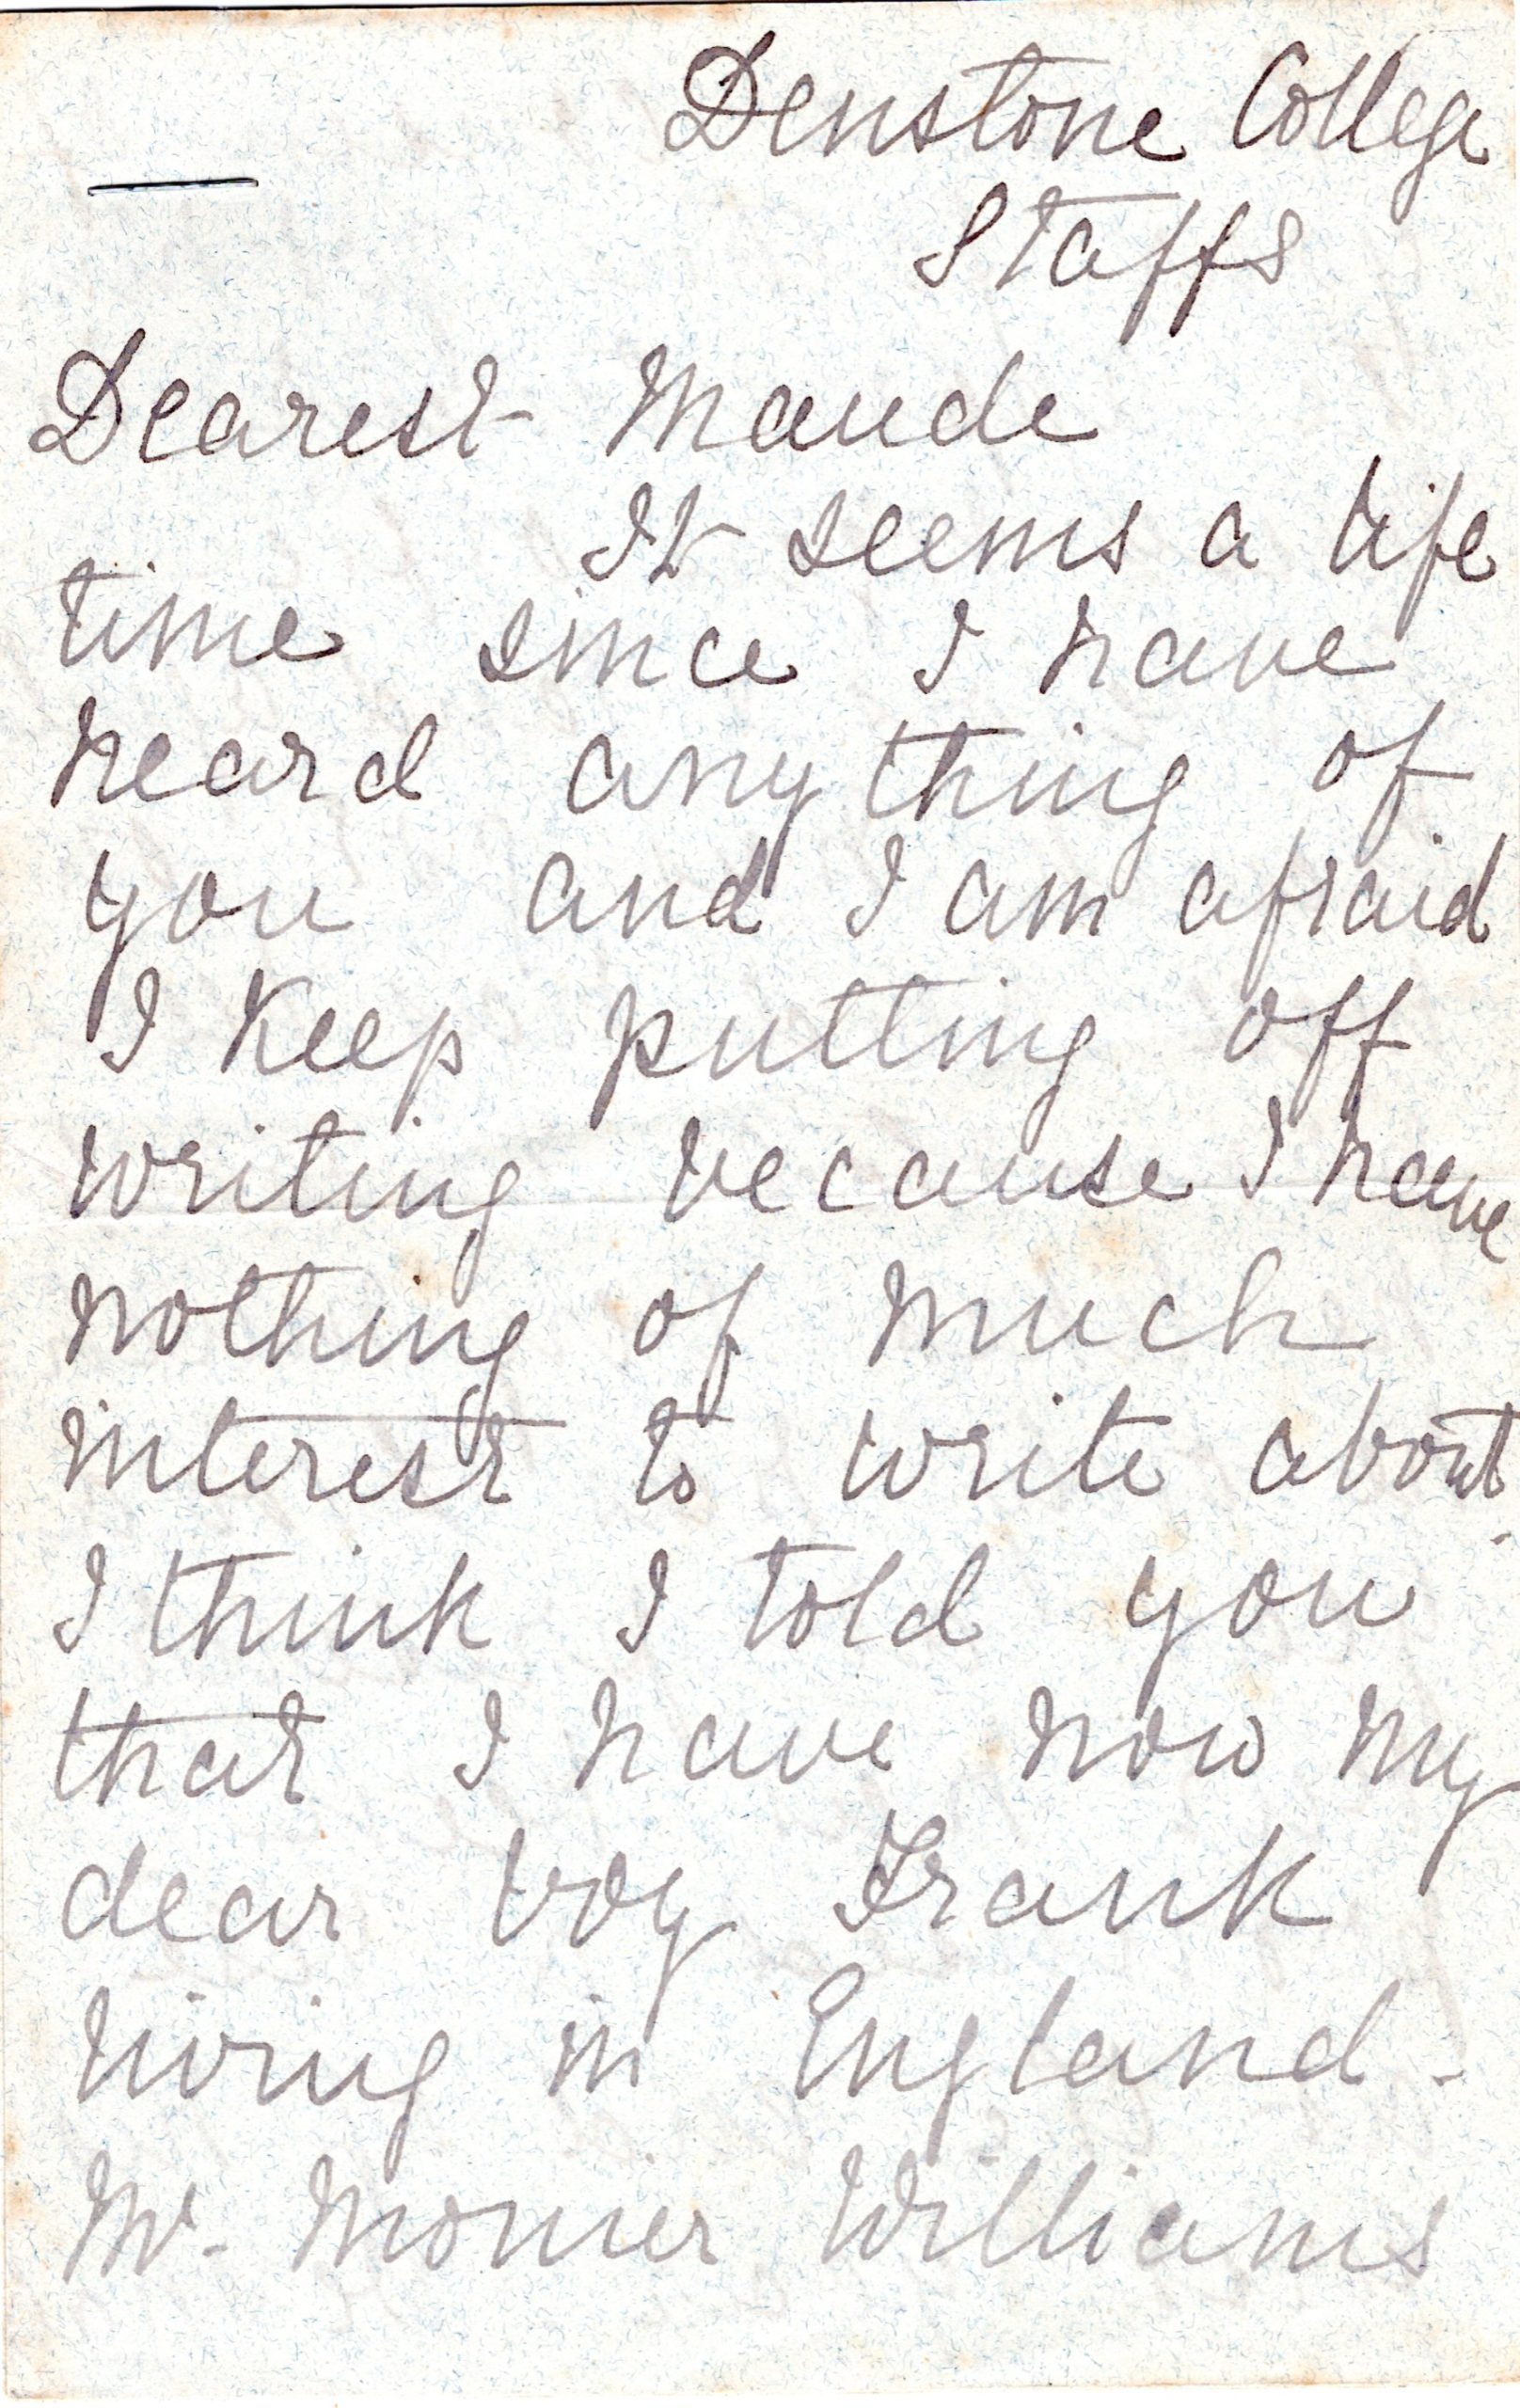 Denstone College
Staffs
Dearest Maude
It seems a life
time since I have
heard any thing of
you and I am afraid
I keep putting off
writing because I have
nothing of much
interest to write about.
I think I told you
that I have now my
dear boy Frank
living in England -
Mr. Monier Williams